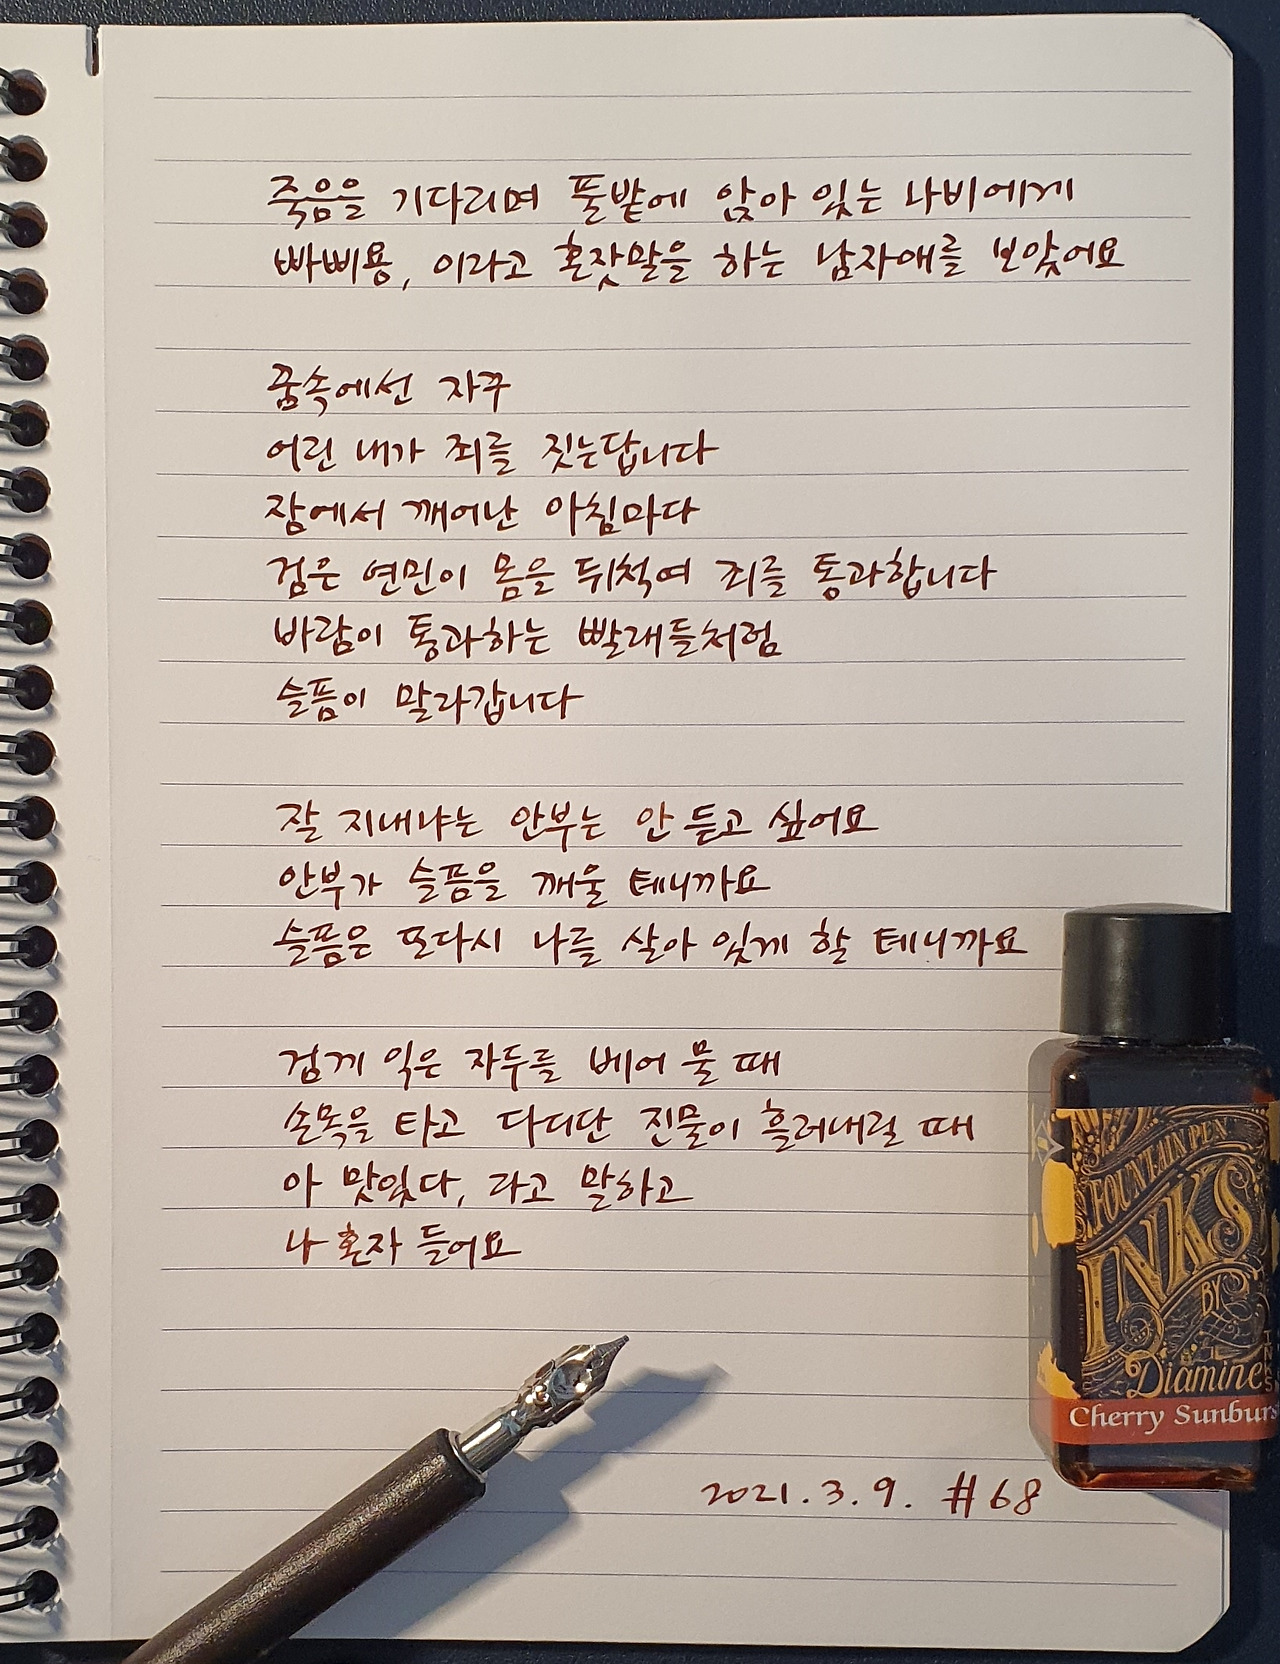 죽음을 기다리며 풀밭에 앉아 있는 나비에게
빠삐용, 이라고 혼잣말을 하는 남자애를 보았어요
꿈속에선 자꾸
어린 내가 죄를 짓는답니다
잠에서 깨어난 아침마다
검은 연민이 몸을 뒤척여 죄를 통과합니다
바람이 통과하는 빨래들처럼
슬픔이 말라갑니다
잘 지내냐는 안부는 안 듣고 싶어요
안부가 슬픔을 깨울 테니까요
슬픔은 또다시 나를 살아 있게 할 테니까요
검게 익은 자두를 베어 물 때
손목을 타고 다디단 진물이 흘러내릴 때
아 맛있다, 라고 말하고
나 혼자 들어요
2021. 3. 9. #68
FOUNTAIN PEN
INKS
BY
Diamine
INKS
Cherry Sunburs